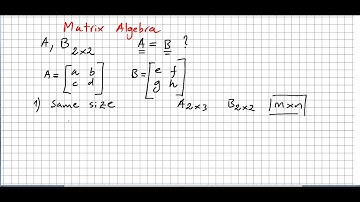 Matrix Algebra
A, B 2×2 A = B ?
A = [a b c d] B = [e f g h]
1) Same size A2×3 B2×2 m×n